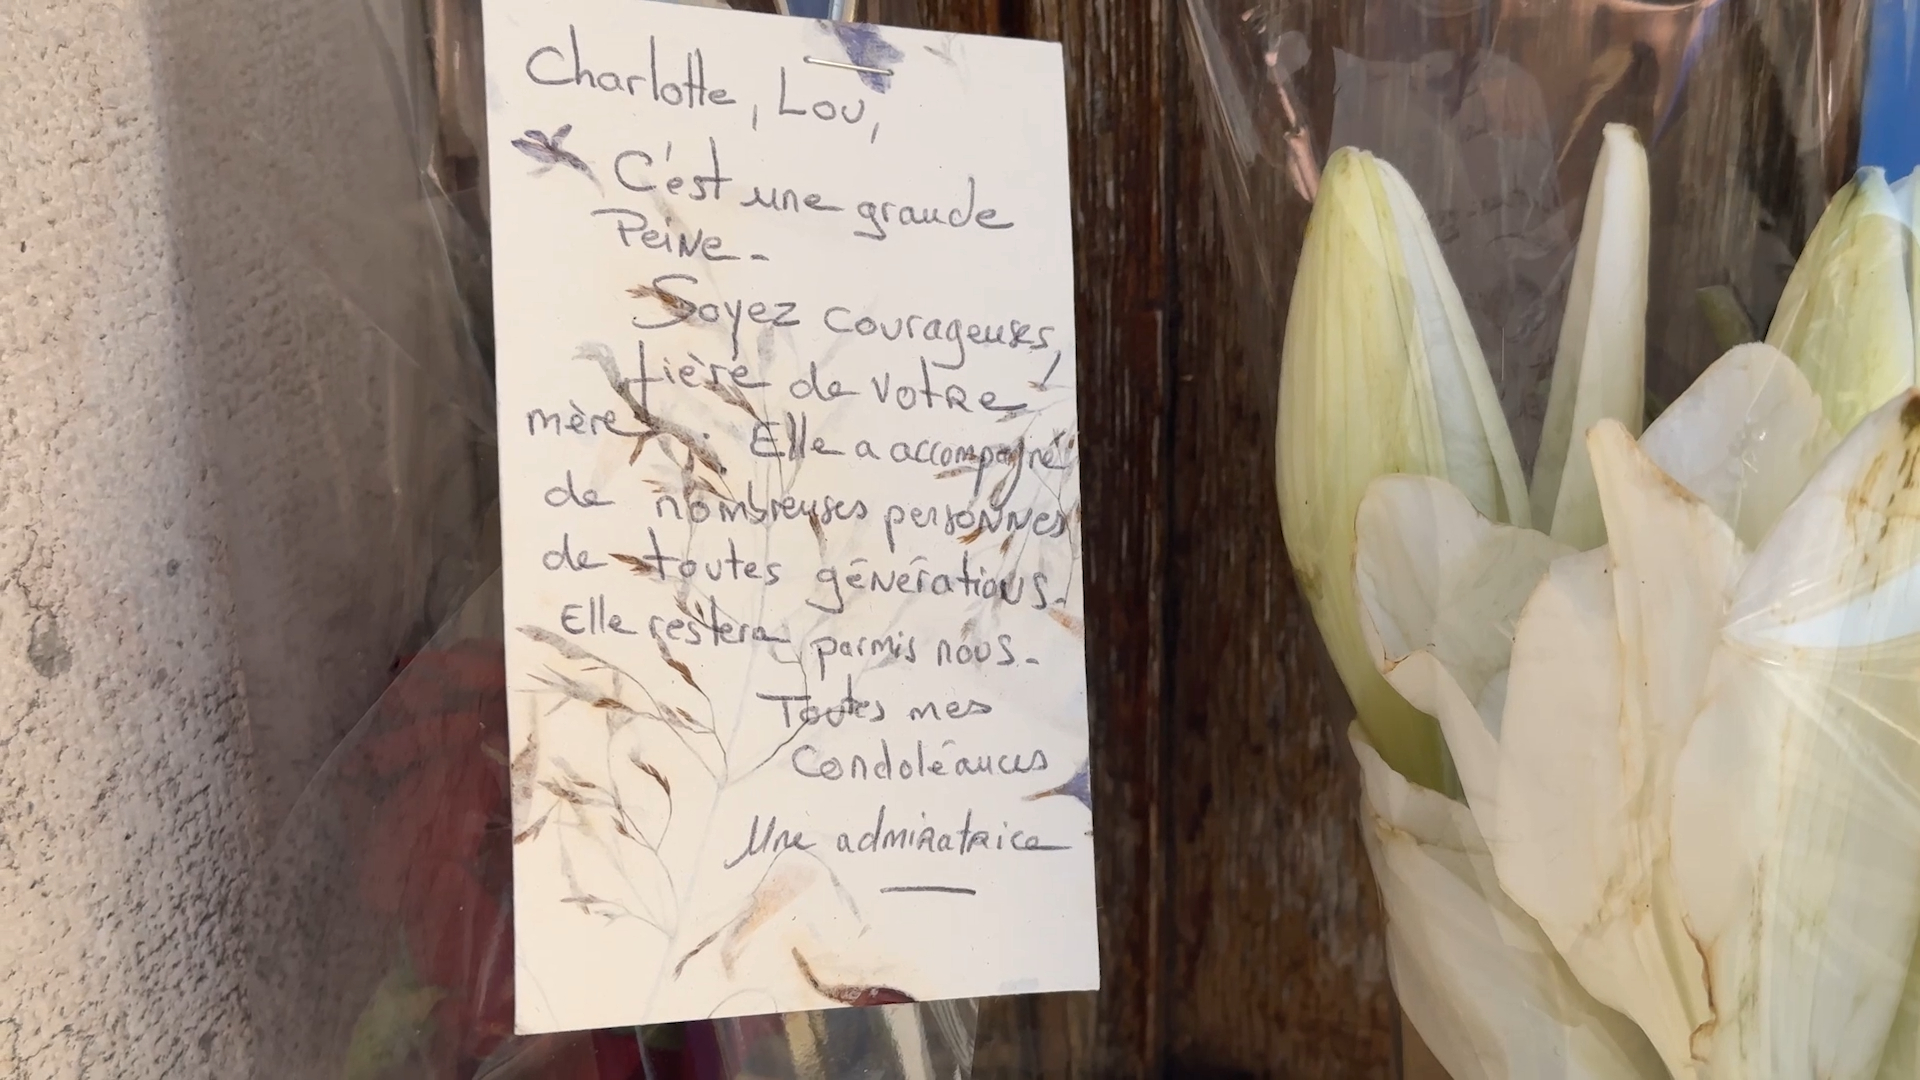 Charlotte, Lou,
C'est une grande
Peine_
Soyez courageuses,
fière de votre
mère. Elle a accompagné
de nombreuses personnes
de toutes générations_
Elle restera parmis nous_
Toutes mes
Condoléances
Une admiratrice